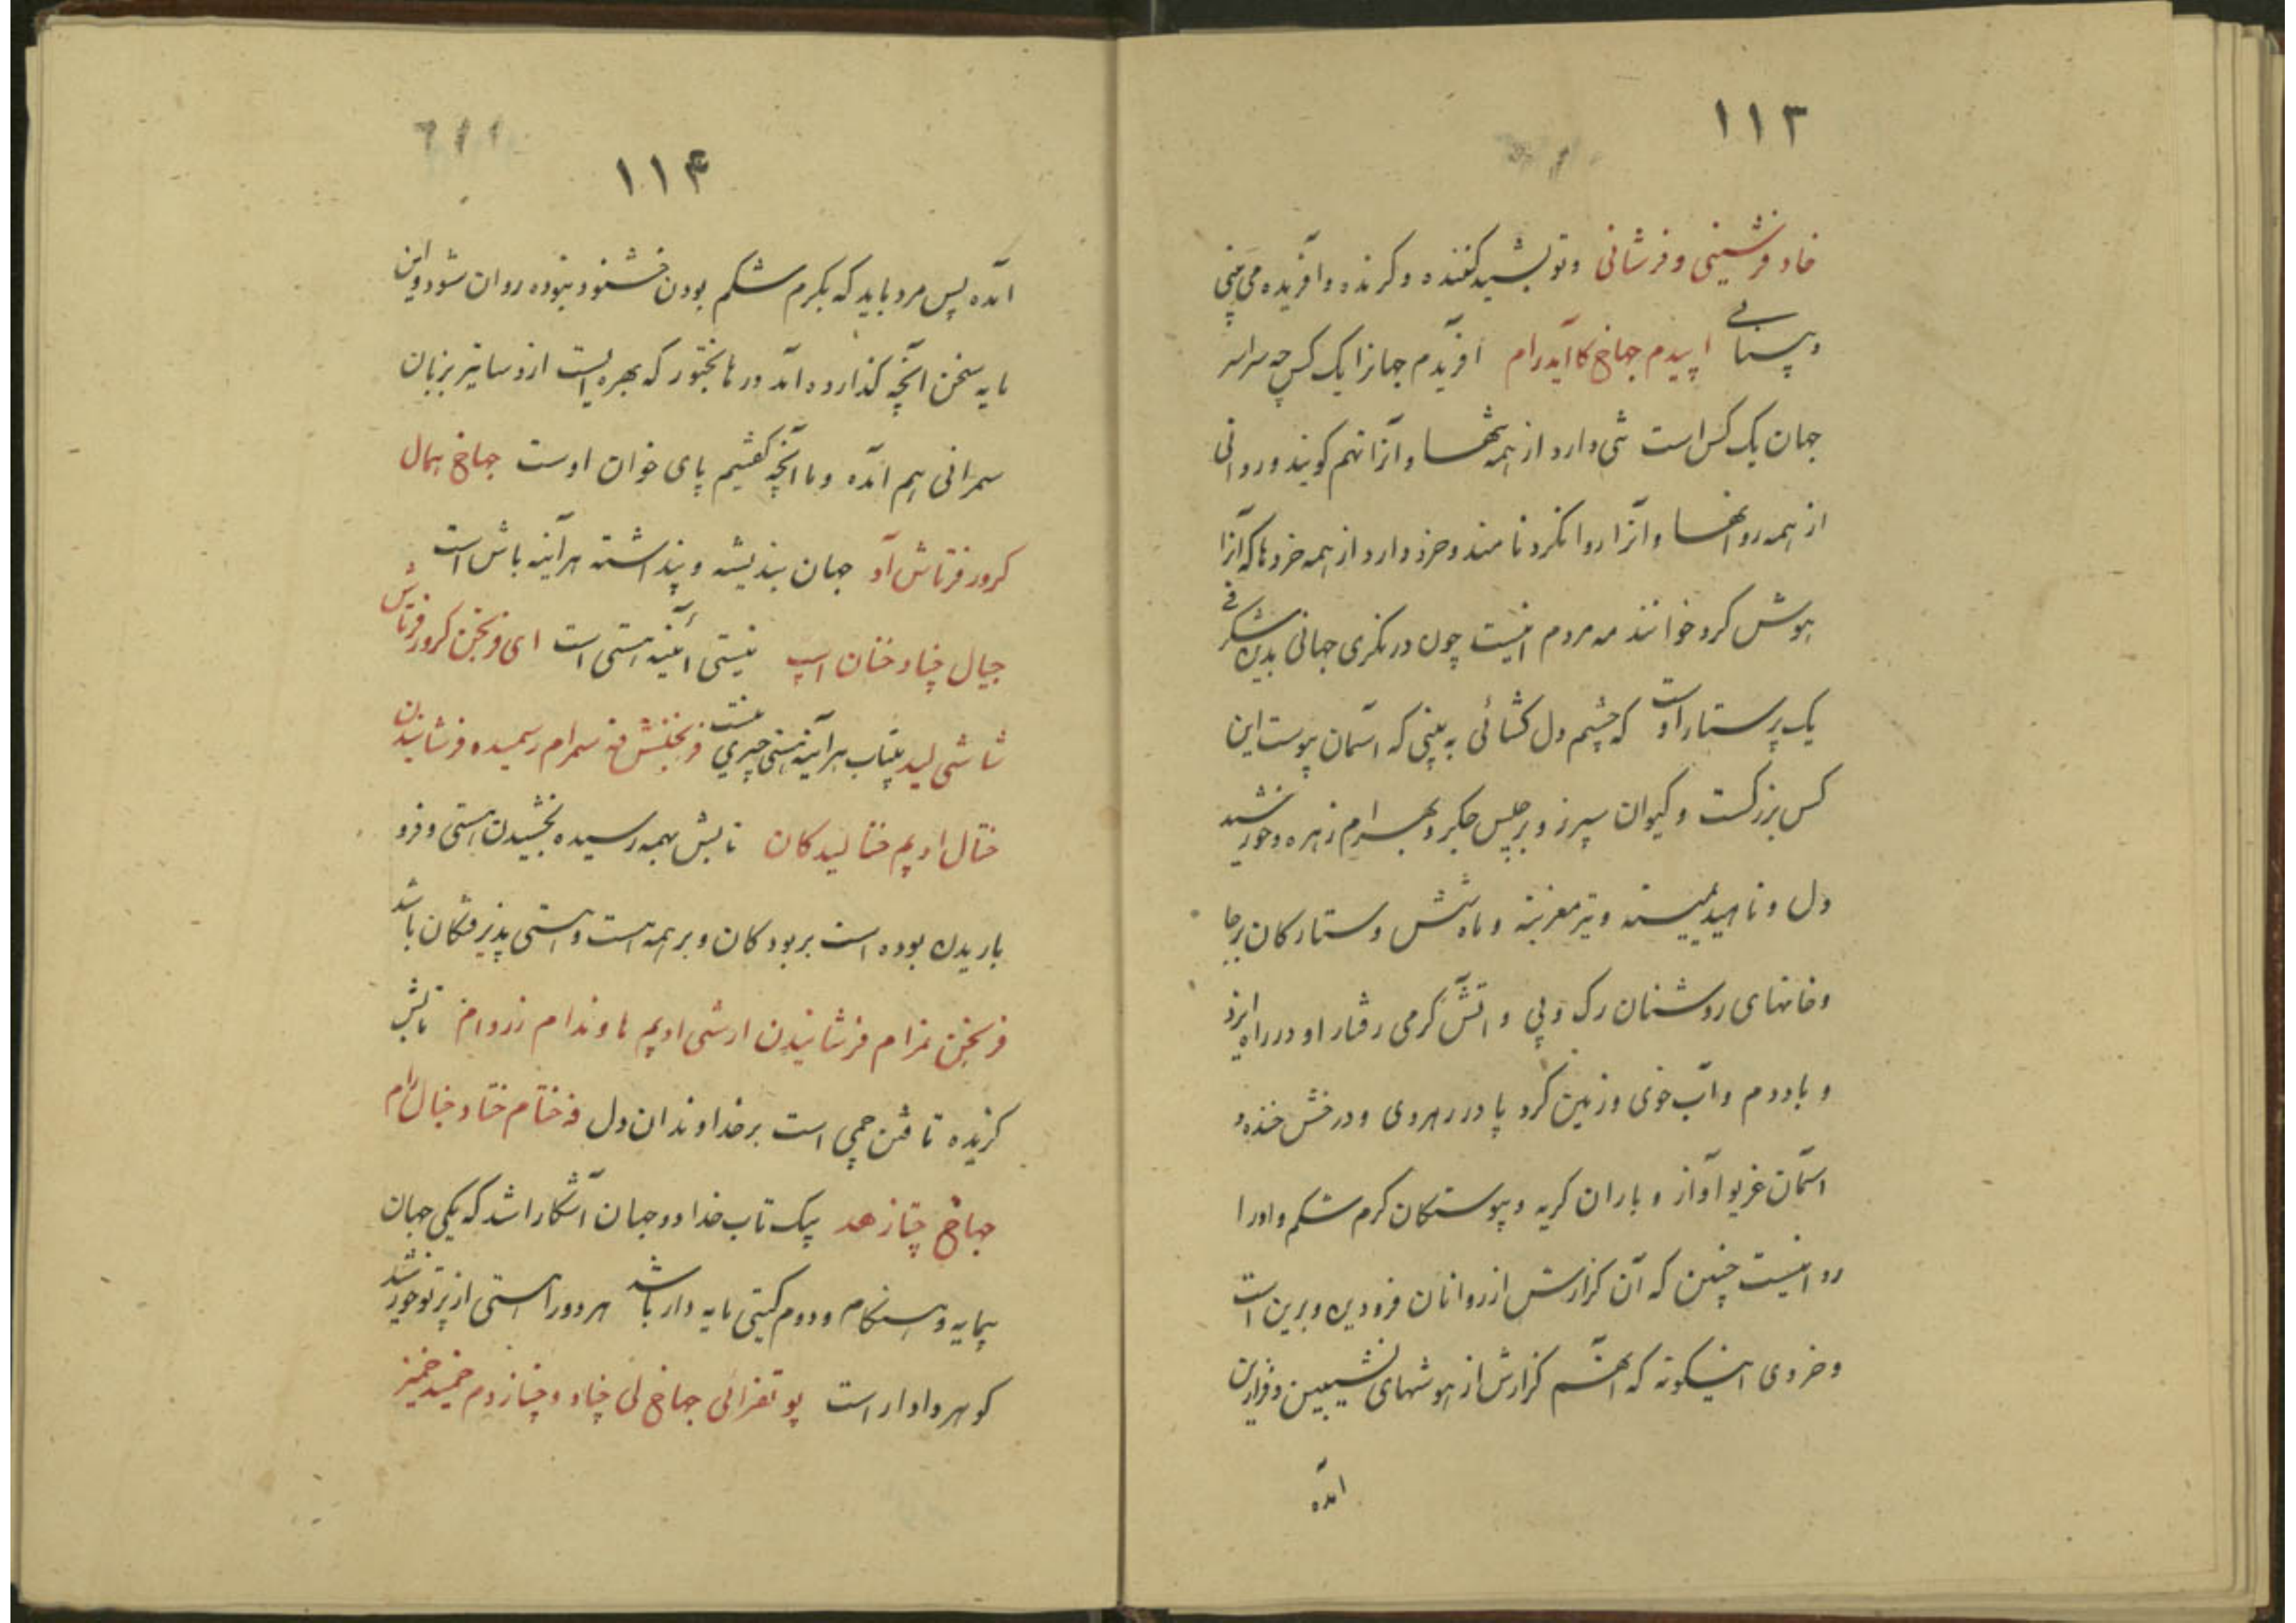 ۱۱۳
خاد فرشینی و فرشانی وتو بشید کننده وکرنده وافریده می بینی
و پستایی اپیدم جهاخ کاآیدرام آفریدم جهانرا یک کس چه سراسر
جهان یک کس است تنی دارد از همه تنها وآنرا تنهم کویند وروانی
از همه روانها وآنرا روانکرد نامند وخرد دارد از همه خردها که آنرا
هوش کرد خوانند مه مردم اینست چون درنکری جهانی بدین شکرفی
یک پرستار اوست که چشم دل کشائی به بینی که آسمان پوست این
کس بزرکست وکیوان سپرز وبرجیس جکر وبهرام زهره وخورشید
دل وناهید میسنه وتیر مغزبنه وماه شش وستارکان برجا
وخانهای روشنان رک وپی و آتش کرمی رفتار او درراه ایزد
و باد دم وآب خوی وزمین کرد پا در رهروی ودرخش خنده و
آسمان غریو آواز و باران کریه وپیوستکان کرم شکم واورا
روانیست چنین که آن کزارش از روانان فرودین وبرین است
وخردی اینکونه که آنهم کزارش از هوشهای نشیبین وفرازین
آمده
۱۱۴
آمده پس مرد باید که بکرم شکم بودن خشنود نبوده روان شود واین
مایه سخن آنچه کذارده آمد در مانختور که بهره ایست از دساتیر بزبان
سمرانی هم آمده وما آنچه کفتیم پای خوان اوست جهاخ همال
کرور فرتاش آد جهان بندیشه و پنداشته هر آینه باش است
جیال چناد ختان اسپ نیستی آئینه هستی است ای فرنخجن کرور فرتاش
شاشی لید بیتاب هر آینه هستی چیزی نیست فرنخجنش فه سمرام رسمیده فرشانیدن
ختال ادیم ختالیدکان تابش بهمه رسیده بخشیدن هستی وفرو
باریدن بوده است بر بودکان وبر همه است وهستی پذیرفتکان باشد
فرنخجن نمزام فرشانیدن ارشی ادیم هاوندام زروام تابش
کزیده تافتن چمی است بر خداوندان دل فه ختام ختاد خبال رام
جهاخ چتاز هد بیک تاب خدا دو جهان آشکارا شد که یکی جهان
بیمایه وهنکام ودوم کیتی مایه دار باشد هردو را هستی از پرتو خورشید
کوهر وادار است پو تفرائی جهاخ لی چناد وچنازدم خمید خمیز